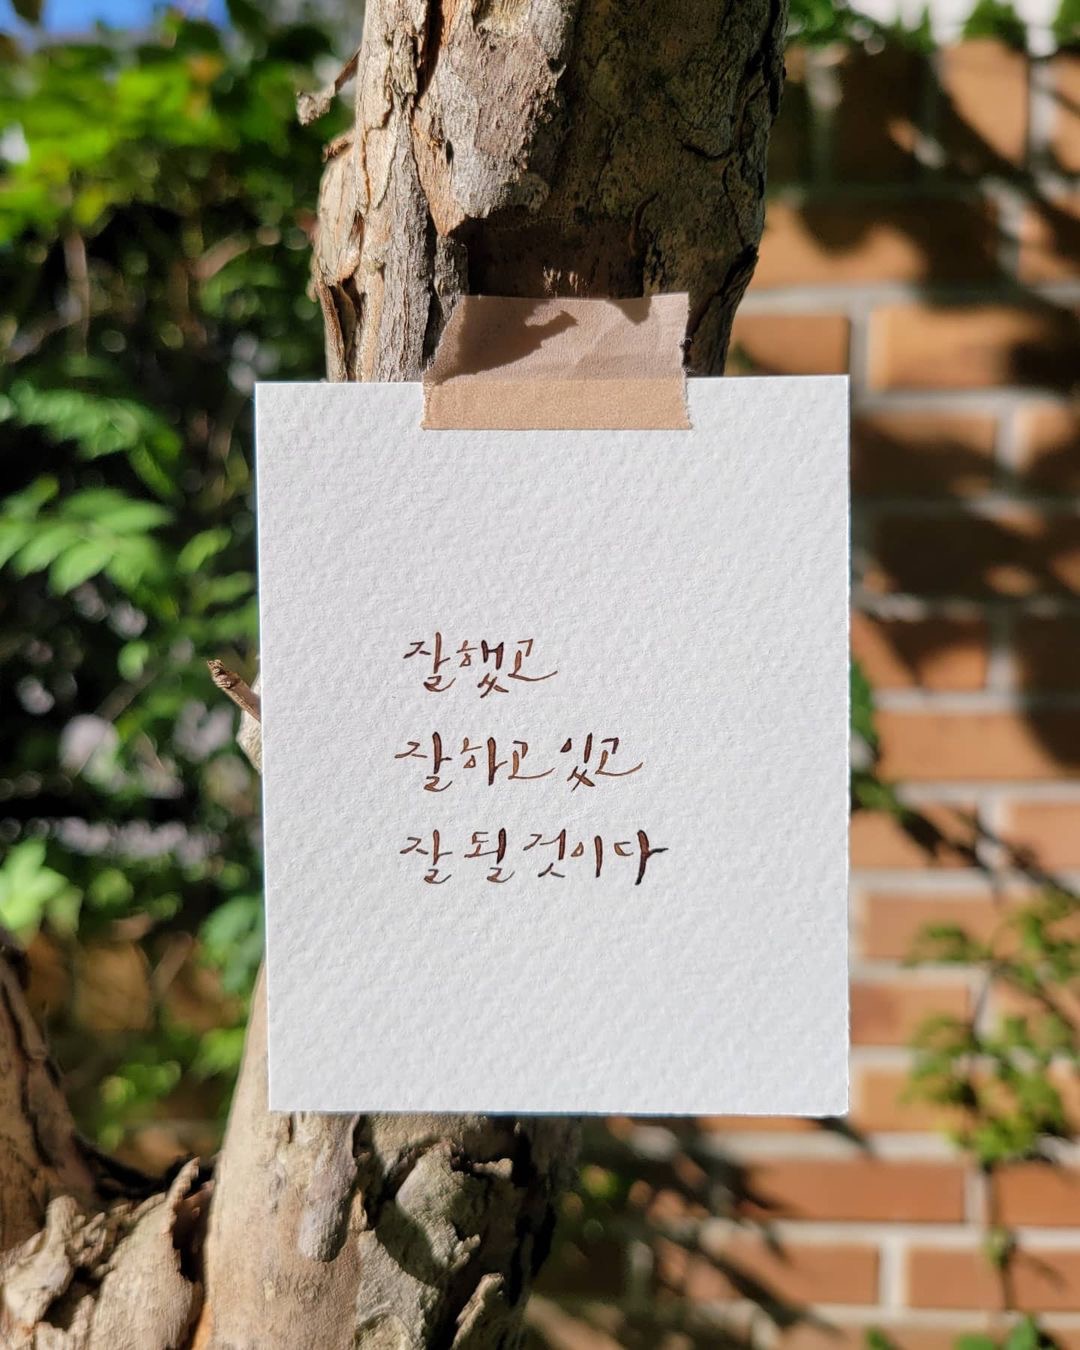 잘했고
잘하고 있고
잘 될 것이다